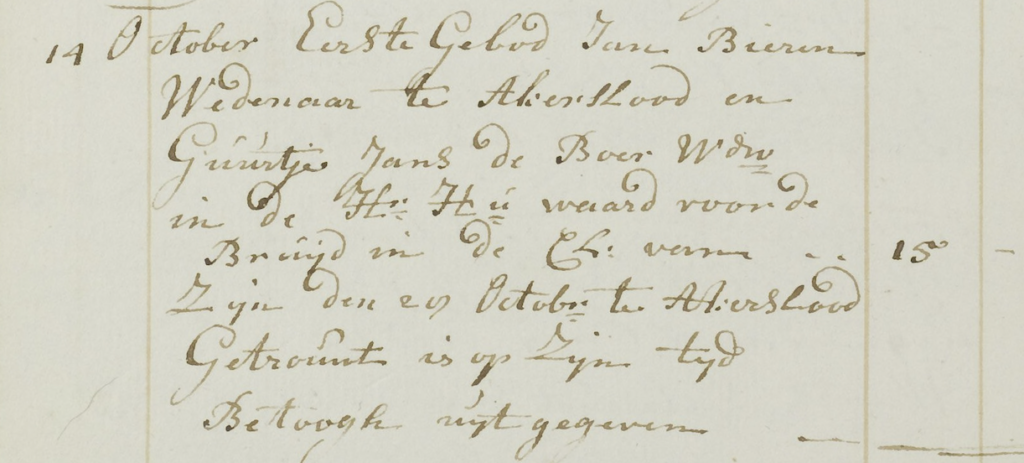 14 October Eerste Gebod Jan Bieren
Wedenaar te Akersloood en
Guurtje Jans de Boer Wdw
in de Hr Hu waard voor de
Bruijd in de Cl: verm .. 15 -
Zijn den 29 Octobr te Akersloood
Getrouwt is op Zijn tijd
Betoogh uijt gegeven